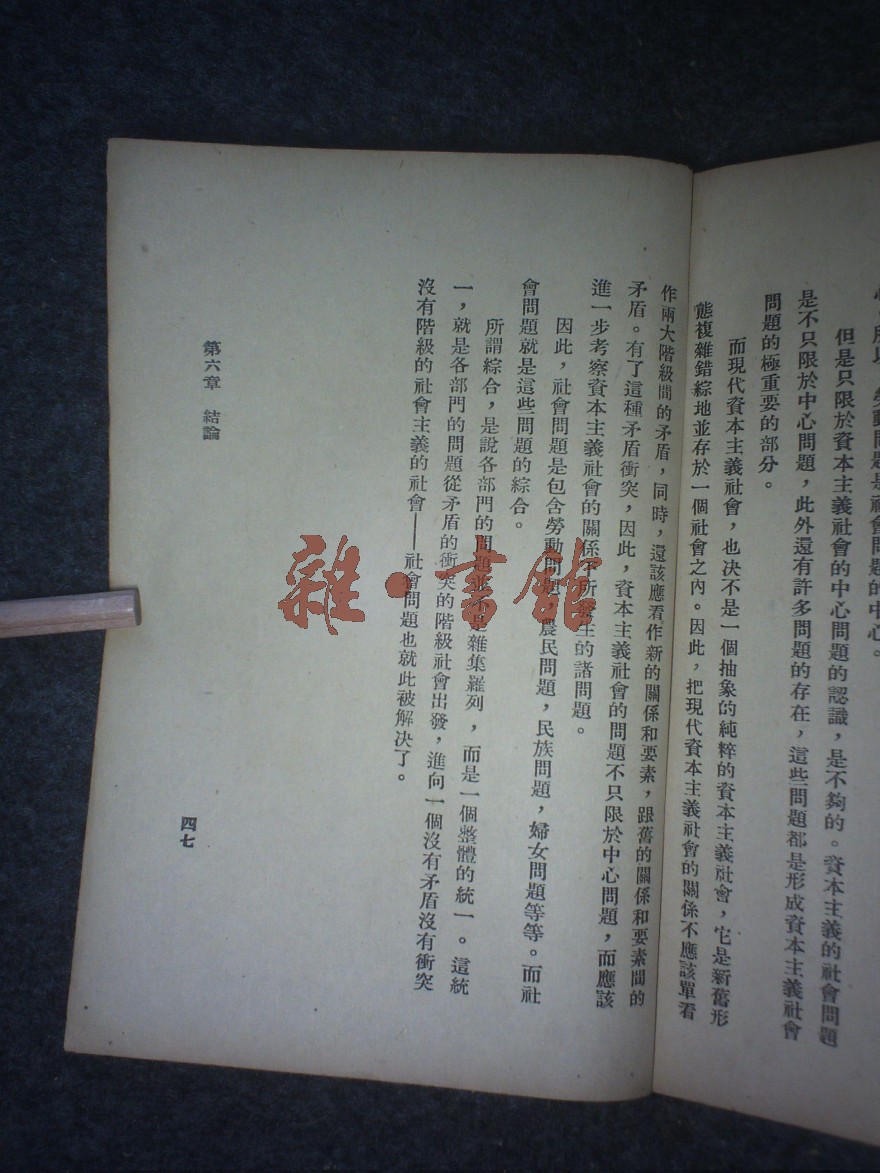 勞動問題是社會問題的中心。
但是只限於資本主義社會的中心問題的認識，是不夠的。資本主義的社會問題
是不只限於中心問題，此外還有許多問題的存在，這些問題都是形成資本主義社會
問題的極重要的部分。
而現代資本主義社會，也決不是一個抽象的純粹的資本主義社會，它是新舊形
態複雜錯綜地並存於一個社會之內。因此，把現代資本主義社會的關係不應該單看
作兩大階級間的矛盾，同時，還該應看作新的關係和要素，跟舊的關係和要素間的
矛盾。有了這種矛盾衝突，因此，資本主義社會的問題不只限於中心問題，而應該
進一步考察資本主義社會的關係下所發生的諸問題。
因此，社會問題是包含勞動問題，農民問題，民族問題，婦女問題等等。而社
會問題就是這些問題的綜合。
所謂綜合，是說各部門的問題並不是雜集羅列，而是一個整體的統一。這統
一，就是各部門的問題從矛盾的衝突的階級社會出發，進向一個沒有矛盾沒有衝突
沒有階級的社會主義的社會——社會問題也就此被解決了。
第六章 結論
四七
雜·書館